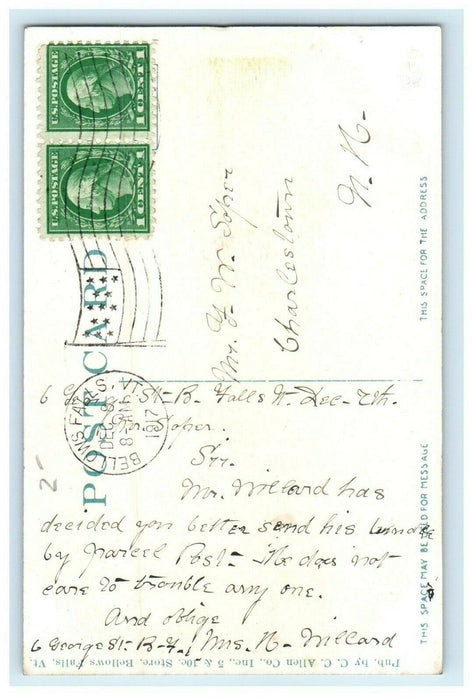 U.S. POSTAGE
1 CENT 1
U.S. POSTAGE
1 CENT 1
POST CARD
BELLOWS FALLS, VT.
DEC 8
8 AM
1917
Mr. W. Soper
Charlestown
N. H.
THIS SPACE FOR THE ADDRESS
6 George St - B. Falls Vt. Dec. 7th.
Mr. Soper.
Sir.
Mr. Willard has
decided you better send his
by parcel Post - He does not
care to trouble any one.
And oblige
6 George St - B. F., Mrs. H. Willard
THIS SPACE MAY BE USED FOR MESSAGE
Pub. by C. C. Allen Co., Inc., 5 & 10c. Store, Bellows Falls, Vt.
2-